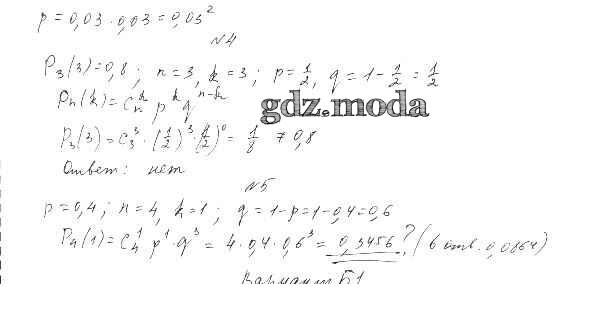 p = 0,03 · 0,03 = 0,03²
№4
P₃(3) = 0,8; n = 3, k = 3; p = 1/2, q = 1 - 1/2 = 1/2
Pₙ(k) = Cₙᵏ pᵏ qⁿ⁻ᵏ
gdz.moda
P₃(3) = C₃³ · (1/2)³ · (1/2)⁰ = 1/8 ≠ 0,8
Ответ: нет
№5
p = 0,4; n = 4, k = 1; q = 1 - p = 1 - 0,4 = 0,6
P₄(1) = C₄¹ p¹ · q³ = 4 · 0,4 · 0,6³ = 0,3456? (В отв. 0,0864)
Вариант Б1